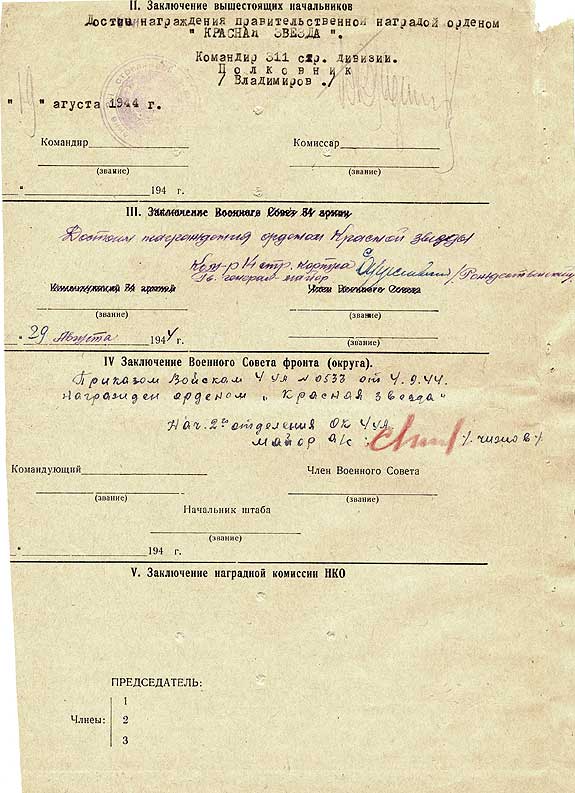 II. Заключение вышестоящих начальников
Достоин награждения правительственной наградой орденом
" КРАСНАЯ ЗВЕЗДА ".
Командир 311 стр. дивизии.
Полковник
/ Владимиров ./
" 19 " агуста 1944 г.
Командир Комиссар
(звание) (звание)
" 194 г.
III. Заключение Военного Совета 54 армии
Достоин награждения орденом Красной звезды
Ком-р 14 стр. корпуса
Гв. генерал майор /Рождественский/
Командующий 54 армией Член Военного Совета
(звание) (звание)
" 29 " Августа 1944 г.
(звание)
IV Заключение Военного Совета фронта (округа).
Приказом Войскам 4 УА № 0533 от 4.9.44.
Награжден орденом „ Красная звезда "
Нач. 2го отделения ОК 4 УА
майор а/с /. Чизнов ./.
Командующий Член Военного Совета
(звание) (звание)
Начальник штаба
(звание)
" 194 г.
V. Заключение наградной комиссии НКО
ПРЕДСЕДАТЕЛЬ:
1
Члнеы: 2
3